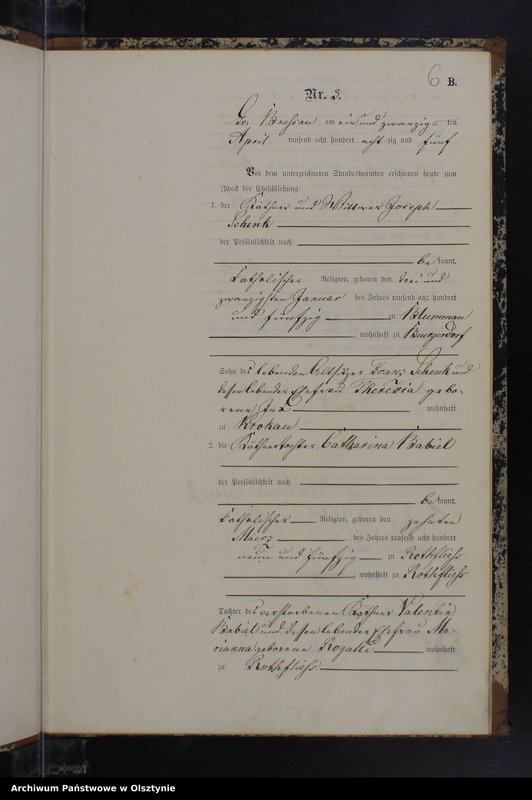 6 B.
Nr. 3.
Gr: am ein und zwanzigsten
April tausend acht hundert acht zig und fünf
Vor dem unterzeichneten Standesbeamten erschienen heute zum
Zweck der Eheschließung:
1. der Käthner und Wittwer Joseph
Schenk
der Persönlichkeit nach
be kannt,
katholischer Religion, geboren den drei und
zwanzigsten Januar des Jahres tausend acht hundert
und fünfzig zu Blumenau
, wohnhaft zu Buergerdorf
Sohn des lebenden Altsitzer Franz Schenk und
dessen lebender Ehefrau Theresia gebo-
rene wohnhaft
zu Krokau
2. die Käthnertochter Catharina Babiel
der Persönlichkeit nach
be kannt,
katholischer Religion, geboren den zehnten
Maerz des Jahres tausend acht hundert
neun und fünfzig zu Rothfliess
, wohnhaft zu Rothfliess
Tochter des verstorbenen Käthner Valentin
Babiel und dessen lebender Ehefrau Ma-
rianna geborene Rogalli wohnhaft
zu Rothfliess
Archiwum Państwowe w Olsztynie